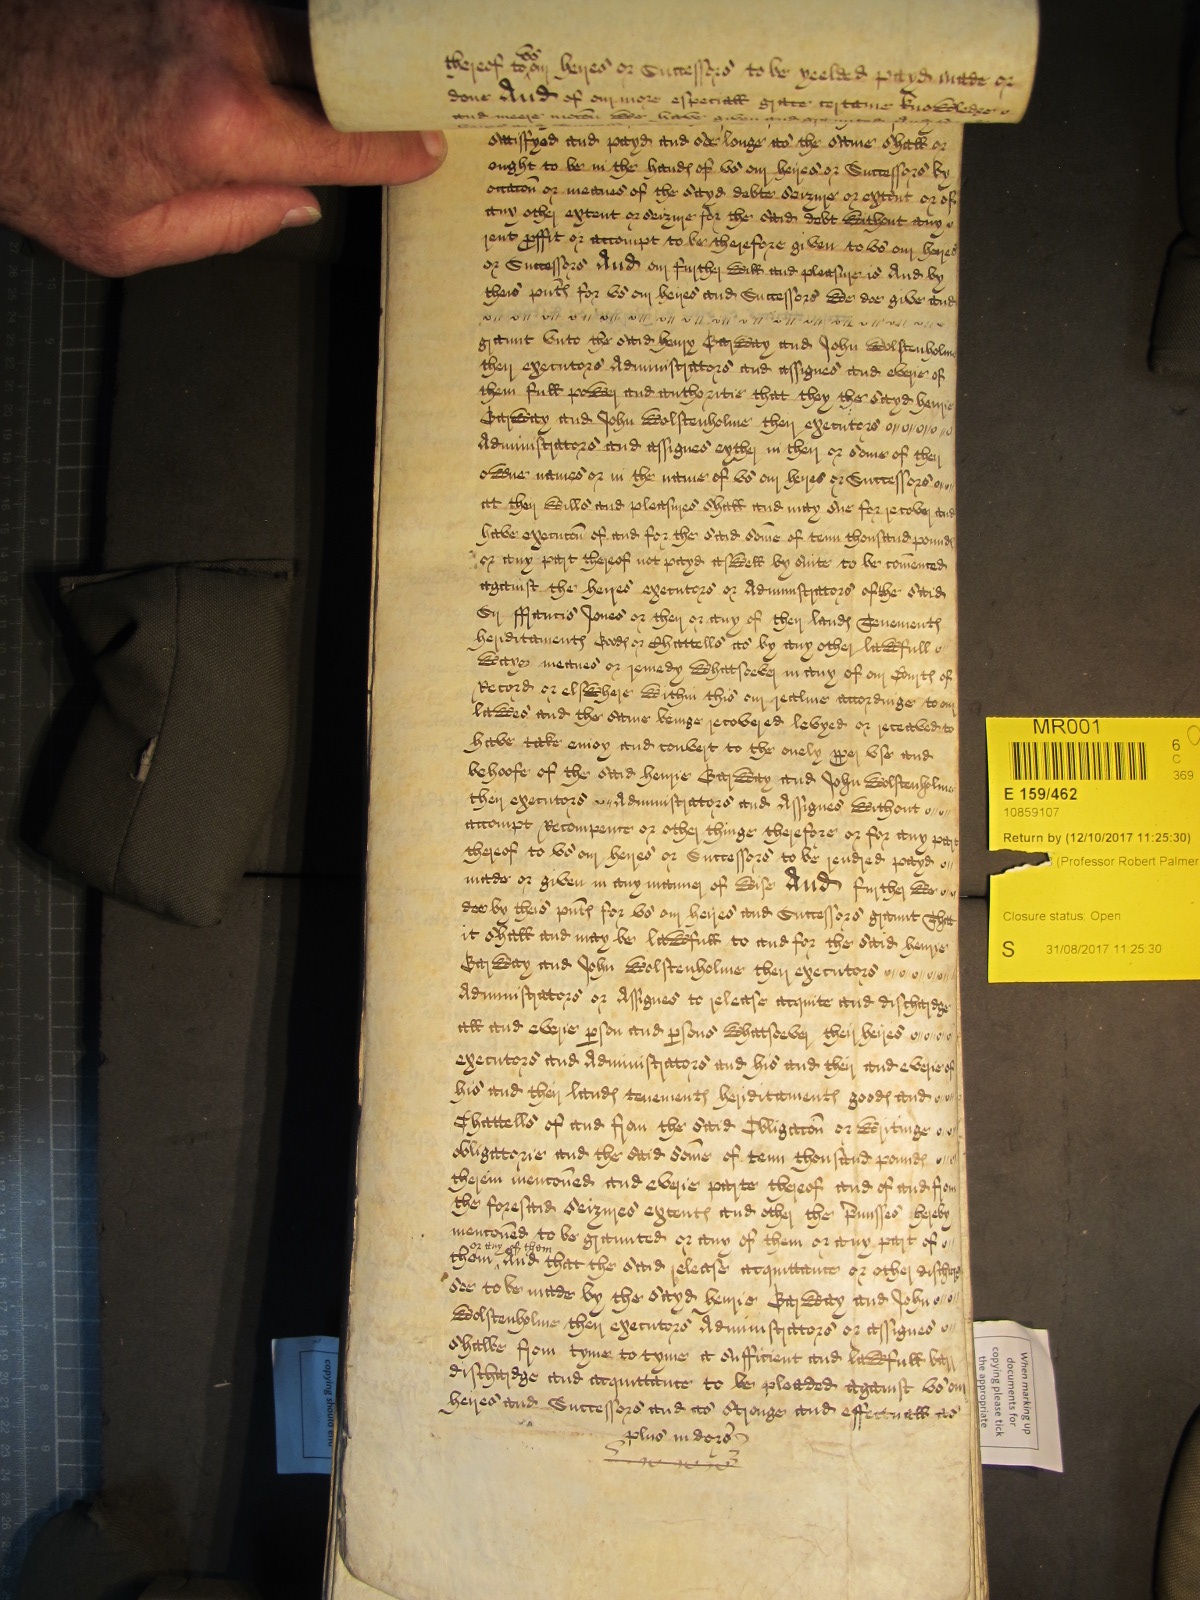 thereof to vs our heires or Successors to be yeelded payd made or
done And of our more especiall grace certaine knowledge
and meere mocon We have given and graunted And
satisfyed and payd and soe longe as the same shall or
ought to be in the hands of vs our heires or Successors by
occacon or meanes of the sayd debte seizure or extent or of
any other extent or seizure for the said debt without any
rent proffit or accompt to be therefore given to vs our heires
or Successors And our further will and pleasure is And by
theis pnts for vs our heires and Successors We doe give and
graunt vnto the said Henry Garway and John Wolstenholme
their executors Administrators and assignes and everie of
them full power and authoritie that they the sayd Henrie
Garway and John Wolstenholme their executors
Administrators and assignes eyther in their or some of their
owne names or in the name of vs our heires or Successors
at their wills and pleasures shall and may sue for recover and
have execucon of and for the said some of tenn thousand pounds
or any part thereof not payd aswell by suite to be comenced
against the heires executors or Administrators of the said
Sir ffrancis Jones or their or any of their lands Tenements
hereditaments Goods or Chattells as by any other lawfull
wayes meanes or remedy whatsoever in any of our Courts of
Record or elswhere within this our realme accordinge to our
lawes and the same beinge recovered levyed or receaved to
have take enioy and convert to the onely pper vse and
behoofe of the said Henrie Garway and John Wolstenholme
their executors Administrators and Assignes without
accompt Recompence or other thinge therefore or for any part
thereof to vs our heires or Successors to be rendred payd
made or given in any manner of wise And further We
doe by theis pnts for vs our heires and Successors graunt That
it shall and may be lawfull to and for the said Henrie
Garway and John Wolstenholme their executors
Administrators or Assignes to release acquite and discharge
all and everie pson and psons whatsoever their heires
executors and Administrators and his and their and everie of
his and their lands tenements hereditaments goods and
Chattells of and from the said Obligacon or Writinge
obligatorie and the said some of tenn thousand pounds
therein menconed and everie parte thereof and of and from
the foresaid seizures extents and other the pmisses hereby
menconed to be graunted or any of them or any part of
or any of them
them And that the said release acquittance or other discharge
soe to be made by the sayd Henrie Garway and John
Wolstenholme their executors Administrators or assignes
shalbe from tyme to tyme a sufficient and lawfull barr
discharge and acquittance to be pleaded against vs our
heires and Successors and as stronge and effectuall as
plus in dors
MR001
6
C
369
E 159/462
10859107
Return by (12/10/2017 11:25:30)
(Professor Robert Palmer
Closure status: Open
S 31/08/2017 11:25:30
When marking up
documents for
copying please tick
the appropriate
copying should end